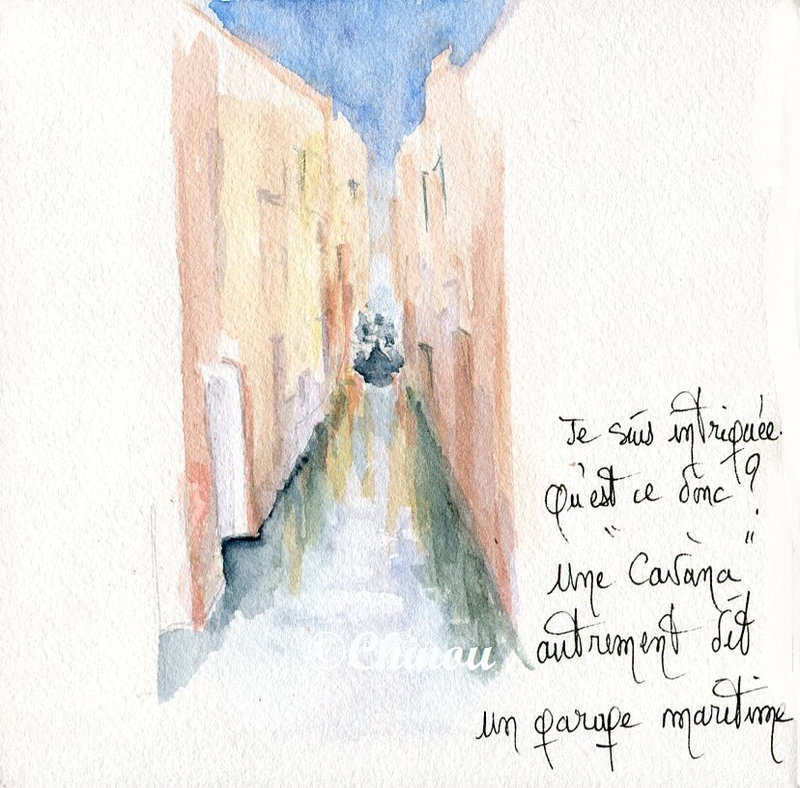 Je suis intriguée.
Qu'est ce donc ?
"Une Cavàna"
autrement dit
un garage maritime
© Chinou